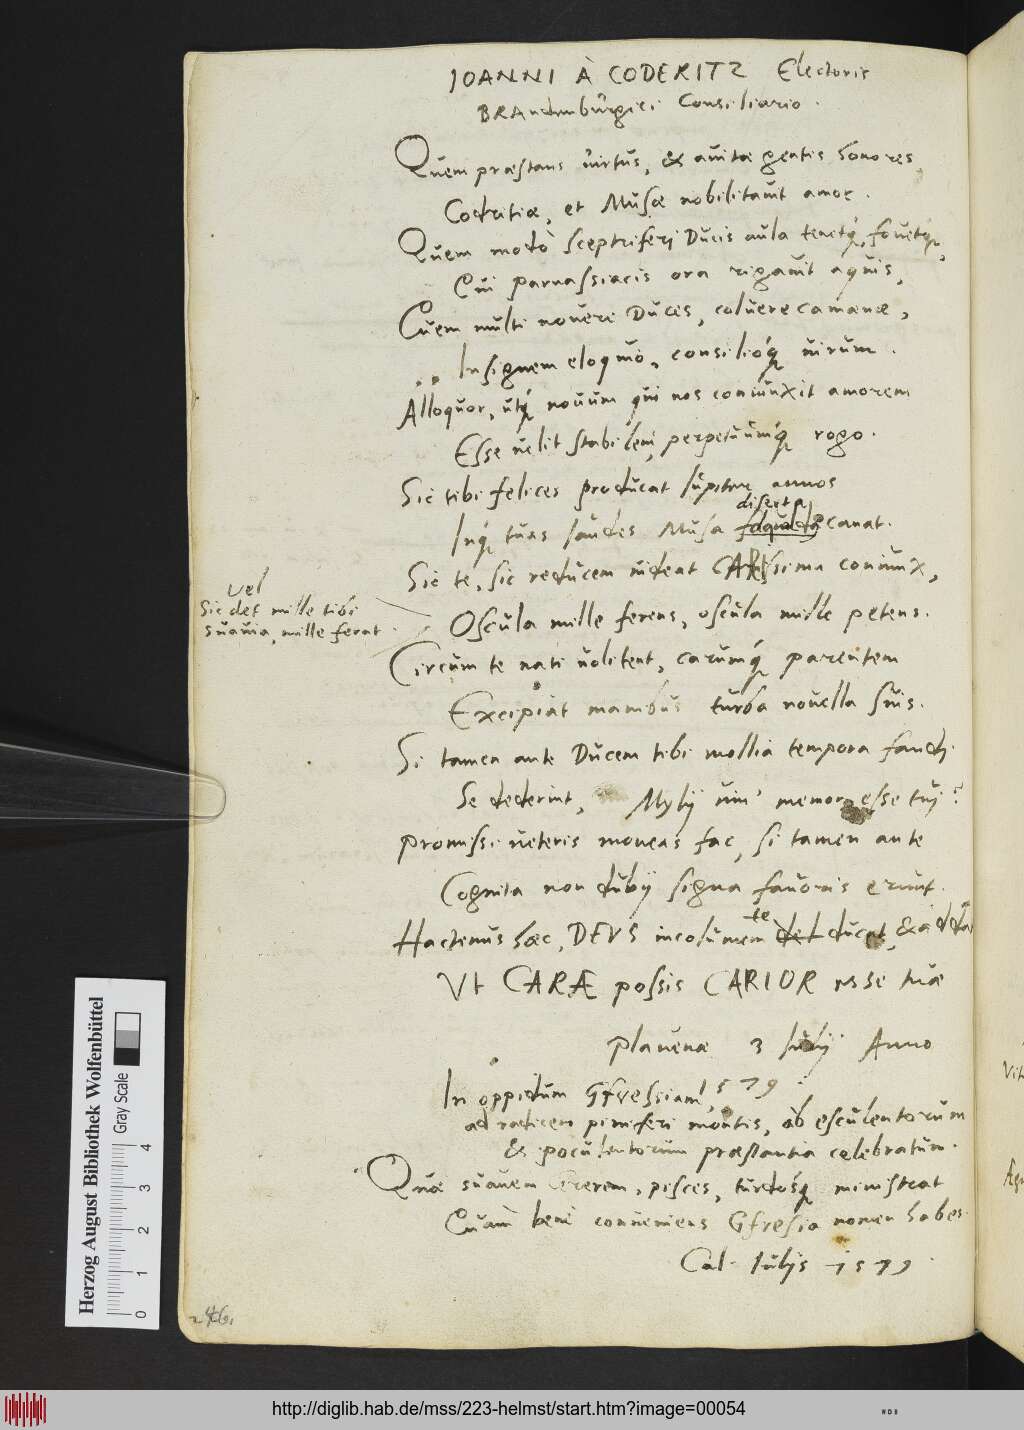 IOANNI À CODERITZ Electoris
BRAndenburgici Consiliario.
Quem præstans virtus, & auitæ gentis honores
Codritiæ, et Musæ nobilitauit amor.
Quem modò sceptriferi Ducis aula tenetq́, fouetq́,
Cui parnassiacis ora rigauit aquis,
Quem multi nouere Duces, coluere camænæ,
Insignem eloquio, consilioq́ uirum.
Alloquor, utq́ nouum qui nos coniunxit amorem
Esse uelit stabilem, perpetuumq́ rogo.
Sic tibi felices producat Iupiter annos
diserta
Inq́ tuas laudes Musa canat.
Sic te, sic reducem uideat CARissima coniunx,
vel
Sic det mille tibi
suauia, mille ferat.
Oscula mille ferens, oscula mille petens.
Circum te nati uolitent, carumq́ parentem
Excipiat manibus turba nouella suis.
Si tamen ante Ducem tibi mollia tempora fandi
Se dederint, Mylij memor esse tui?
Promissi ueteris moneas fac, si tamen ante
Cognita non dubij signa fauoris erunt.
te
Hactenus hæc, DEVS incolumem ducat, &
Vt CARÆ possis CARIOR esse tuæ
Plauenæ 3 Iulij Anno
1579.
In oppidum Gfressiam,
ad radicem piniferi montis, ob esculentorum
& poculentorum præstantia celebratum.
Quæ suauem Cererem, pisces, turdosq́ ministrat
Quàm benè conueniens Gfresia nomen habes.
Cal. Iulijs 1579.
246.
Herzog August Bibliothek Wolfenbüttel
Gray Scale
0 1 2 3 4
http://diglib.hab.de/mss/223-helmst/start.htm?image=00054